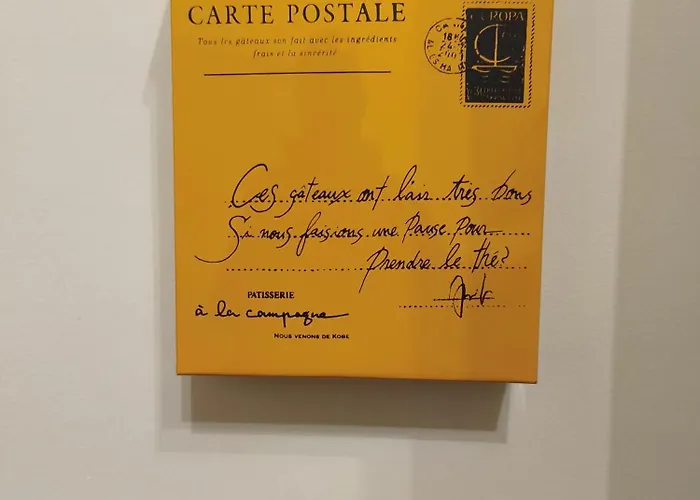 CARTE POSTALE
Tous les gâteaux son fait avec les ingrédients
frais et la sincérité
EUROPA
Ces gâteaux ont l'air très bons
Si nous faisions une Pause Pour
Prendre le thé?
PATISSERIE
à la campagne
NOUS VENONS DE KOBE